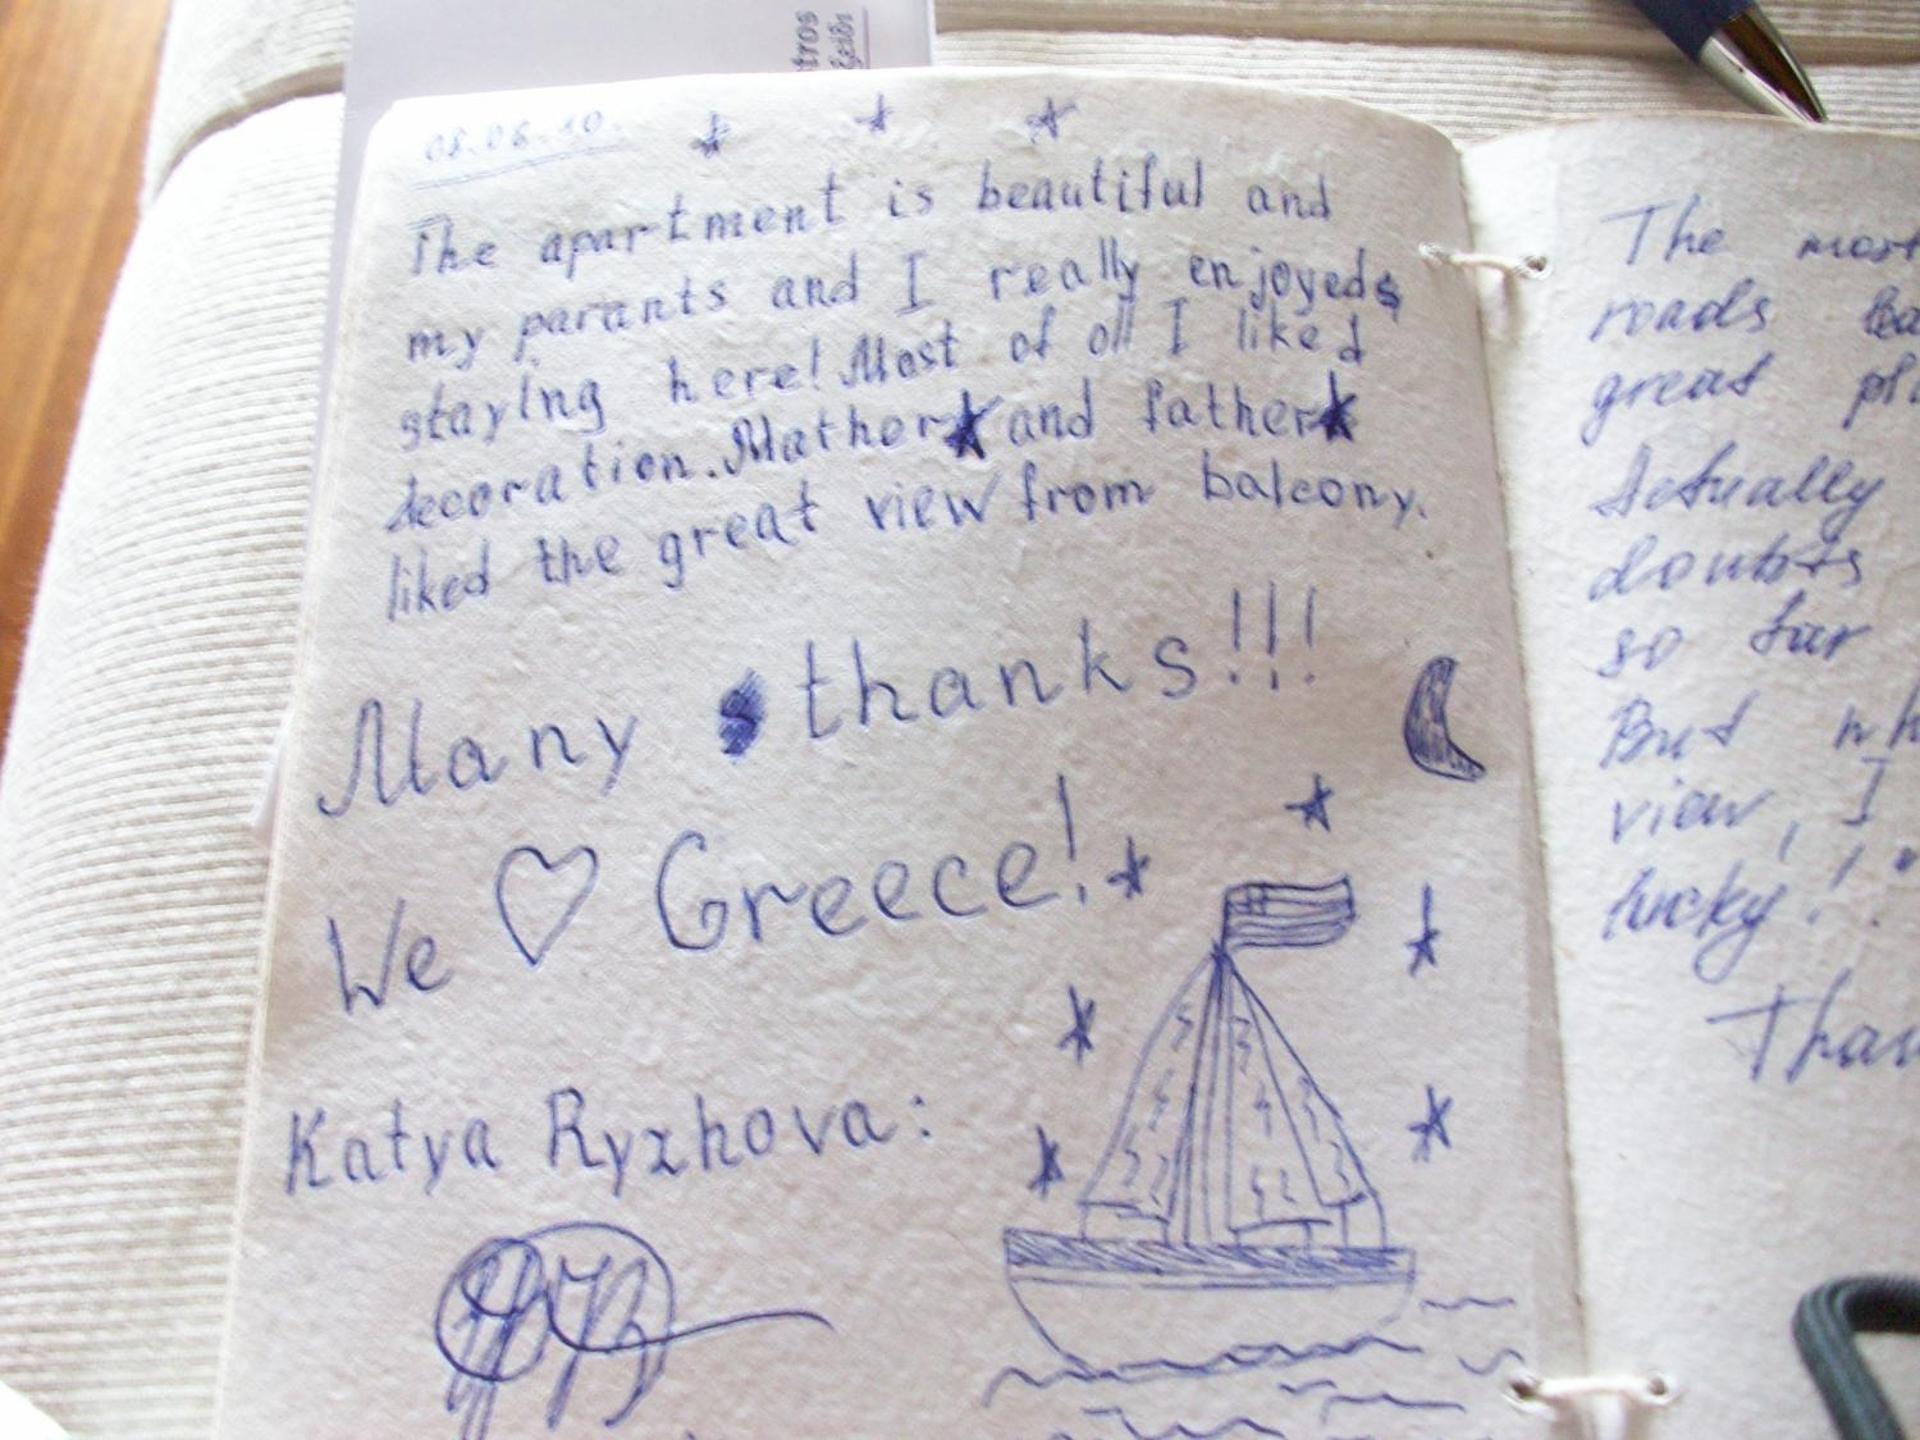 08.06.10.
The apartment is beautiful and
my parants and I really enjoyed
staying here! Most of all I liked
decoration. Mather and father
liked the great view from balcony.
Many thanks!!!
We ♡ Greece!
Katya Ryzhova:
The most
roads
great
Actually
doubts
so far
But
view, I
lucky!
tros